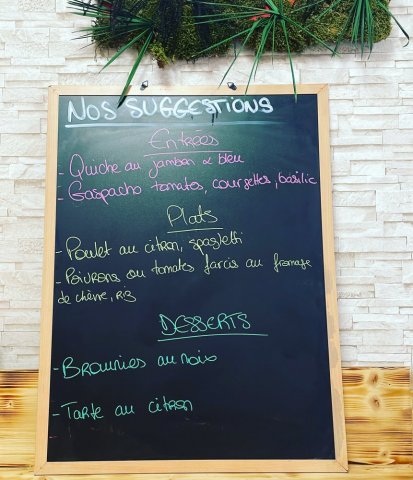 NOS SUGGESTIONS
Entrées
- Quiche au jambon & bleu
- Gaspacho tomates, courgettes, basilic
Plats
- Poulet au citron, spaghetti
- Poivrons ou tomates farcis au fromage
de chèvre, RIZ
DESSERTS
- Brownies au noix
- Tarte au citron